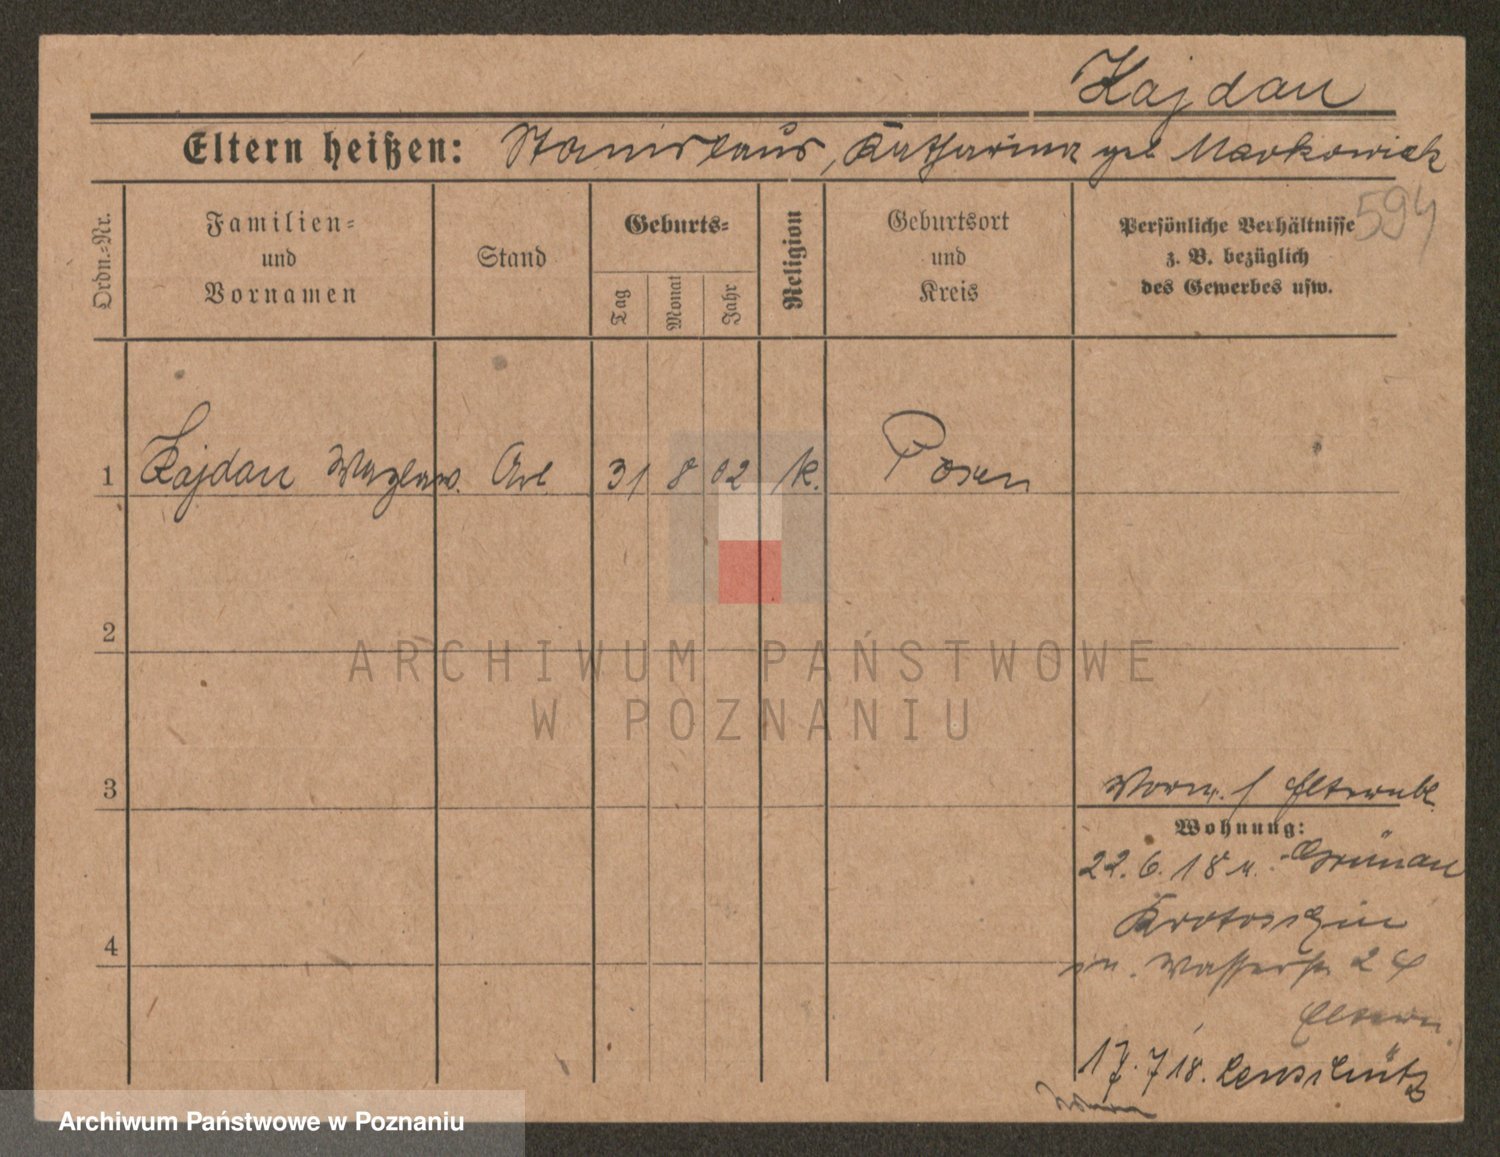 Kajdan
Eltern heißen: Stanislaus, Katharina geb Markowiak
594
Ordn.-Nr.
Familien- und Vornamen
Stand
Geburts-
Tag
Monat
Jahr
Religion
Geburtsort und Kreis
Persönliche Verhältnisse z. B. bezüglich des Gewerbes usw.
1 Kajdan Wazlaw. Arb 31 8 02 k. Posen
2
3
4
Vorm. / Elternbl.
Wohnung:
22. 6. 18 n. Grünau
Krotoschin
Wasserstr 24
Eltern
17. 7 18.
ARCHIWUM PAŃSTWOWE
W POZNANIU
Archiwum Państwowe w Poznaniu